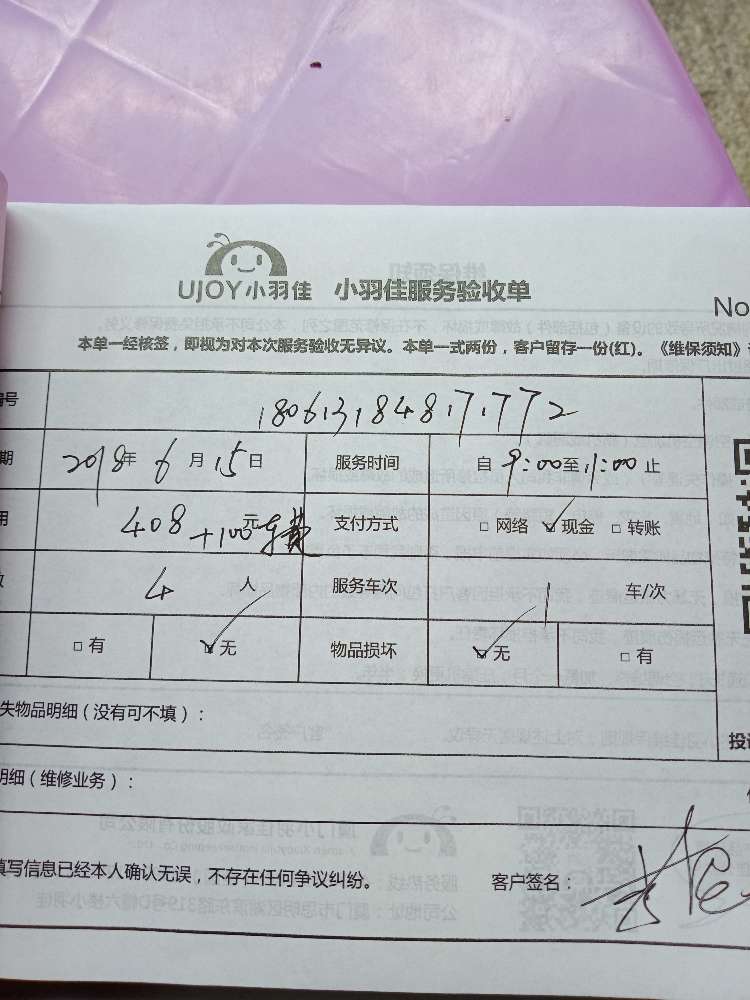 UJOY小羽佳 小羽佳服务验收单
No
本单一经核签，即视为对本次服务验收无异议。本单一式两份，客户留存一份(红)。《维保须知》
编号 180613184817172
期 2018年 6 月 15 日 服务时间 自 9:00 至 11:00 止
用 408 元 +100车费 支付方式 □ 网络 ☑ 现金 □ 转账
数 4 人 服务车次 1 车/次
□ 有 ☑ 无 物品损坏 ☑ 无 □ 有
失物品明细（没有可不填）：
投诉
明细（维修业务）：
填写信息已经本人确认无误，不存在任何争议纠纷。 客户签名：